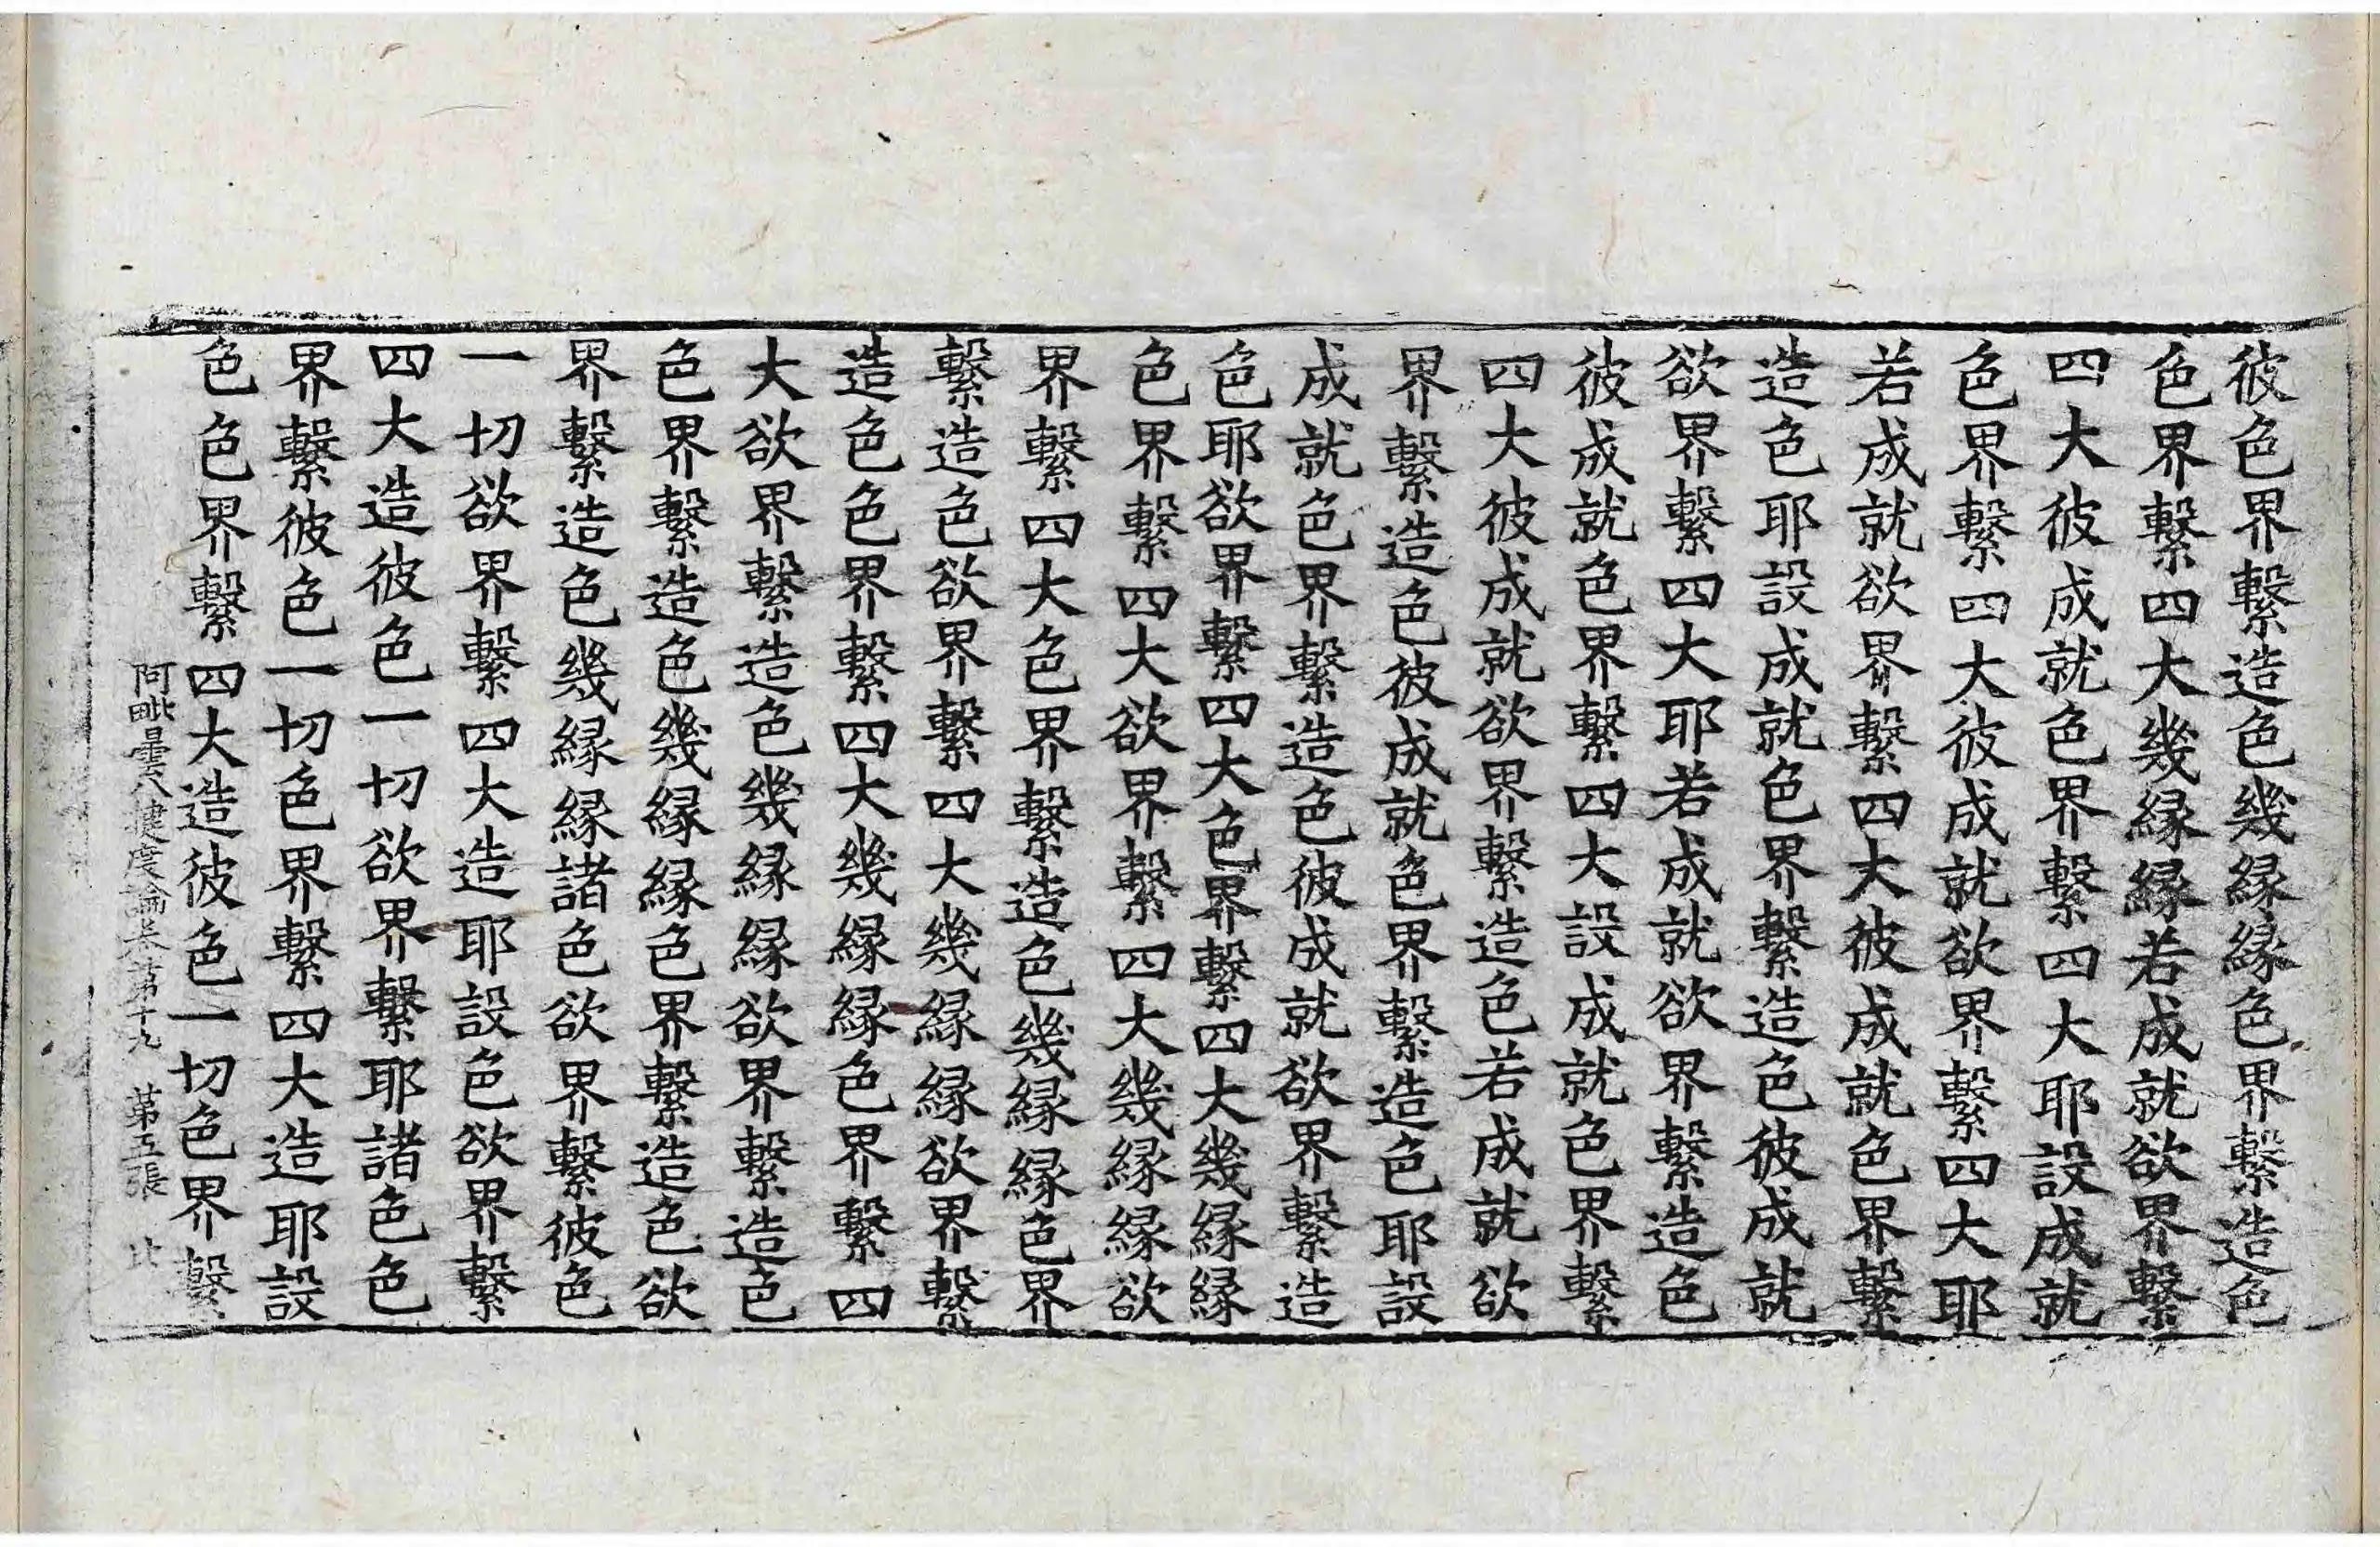 彼色界繫造色幾縁縁色界繫造色
色界繫四大幾縁縁若成就欲界繫
四大彼成就色界繫四大耶設成就
色界繫四大彼成就欲界繫四大耶
若成就欲界繫四大彼成就色界繫
造色耶設成就色界繫造色彼成就
欲界繫四大耶若成就欲界繫造色
彼成就色界繫四大設成就色界繫
四大彼成就欲界繫造色若成就欲
界繫造色彼成就色界繫造色耶設
成就色界繫造色彼成就欲界繫造
色耶欲界繫四大色界繫四大幾縁縁
色界繫四大欲界繫四大幾縁縁欲
界繫四大色界繫造色幾縁縁色界
繫造色欲界繫四大幾縁縁欲界繫
造色色界繫四大幾縁縁色界繫四
大欲界繫造色幾縁縁欲界繫造色
色界繫造色幾縁縁色界繫造色欲
界繫造色幾縁縁諸色欲界繫彼色
一切欲界繫四大造耶設色欲界繫
四大造彼色一切欲界繫耶諸色色
界繫彼色一切色界繫四大造耶設
色色界繫四大造彼色一切色界繫
阿毗曇八揵度論卷第十九 第五張